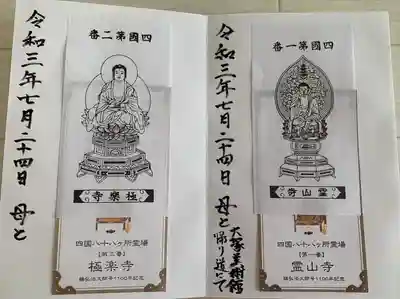 四國第一番
霊山寺
四国八十八ヶ所霊場
【第一番】
霊山寺
弘法大師号1100年記念
令和三年七月二十四日 母と
大塚美術館
帰り道にて
四國第二番
極楽寺
四国八十八ヶ所霊場
【第二番】
極楽寺
弘法大師号1100年記念
令和三年七月二十四日 母と